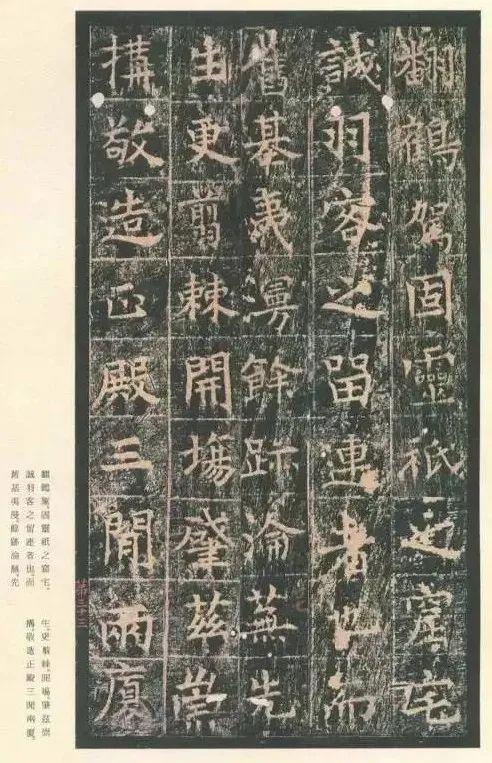 翻鶴駕固靈祇之窟宅
誠羽客之留連者也而
舊基夷漫餘跡淪蕪先
生更翦棘開塲肇茲崇
搆敬造正殿三間兩廈
翻鶴駕固靈祇之窟宅。
誠羽客之留連者也。而
舊基夷漫。餘跡淪蕪。先
生。更翦棘開場。肇茲崇
搆。敬造正殿三間兩廈。